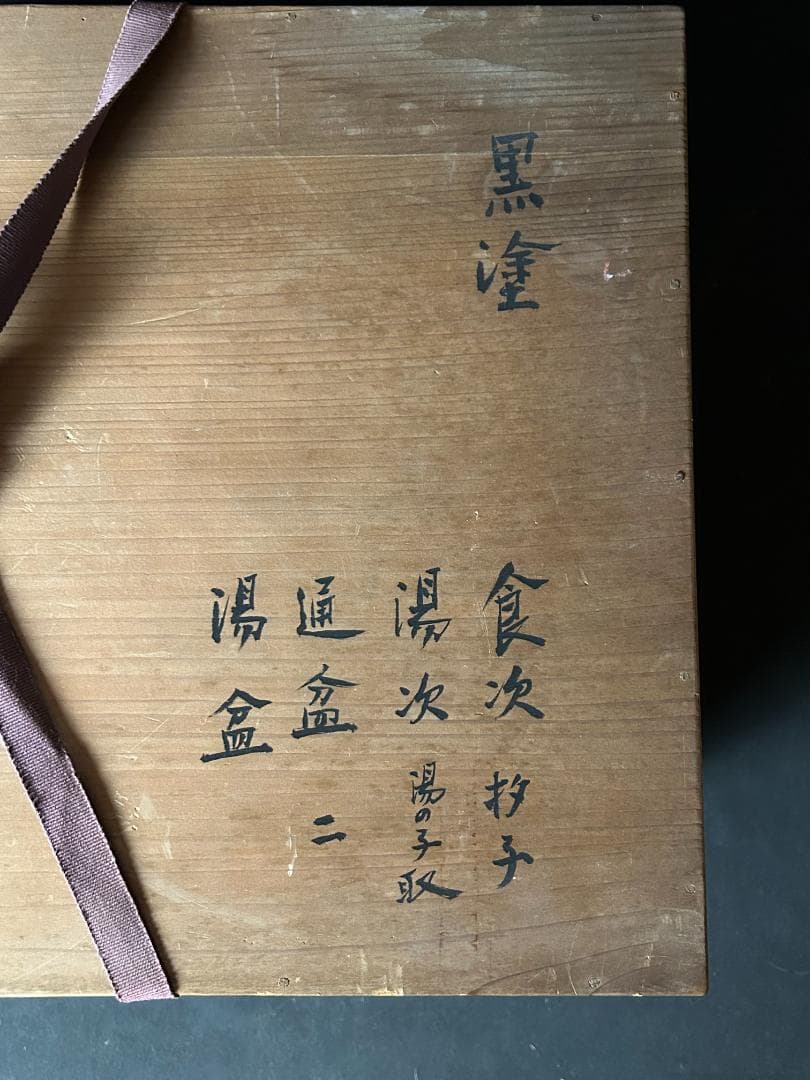 黒塗
食次 杓子
湯次 湯の子取
通盆 二
湯盆